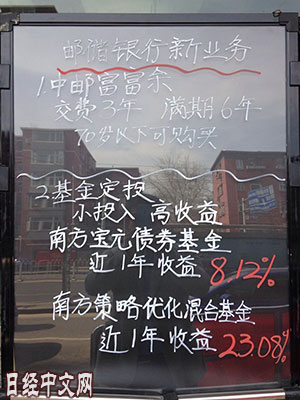 邮储银行新业务
1.中邮富富余
交费3年 满期6年
70岁以下可购买
2.基金定投
小投入 高收益
南方宝元债券基金
近1年收益 8.12%
南方策略优化混合基金
近1年收益 23.08%
日经中文网